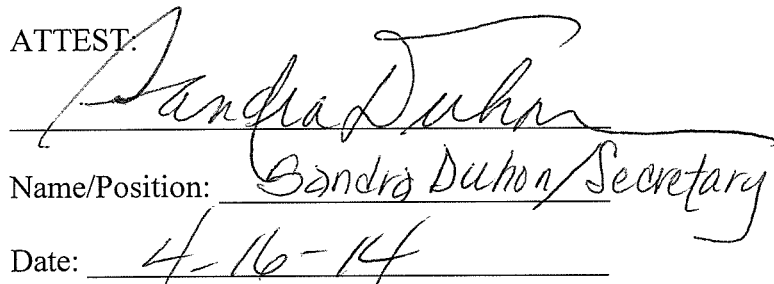 ATTEST:
Sandra Duhon
Name/Position: Sandra Duhon/Secretary
Date: 4-16-14